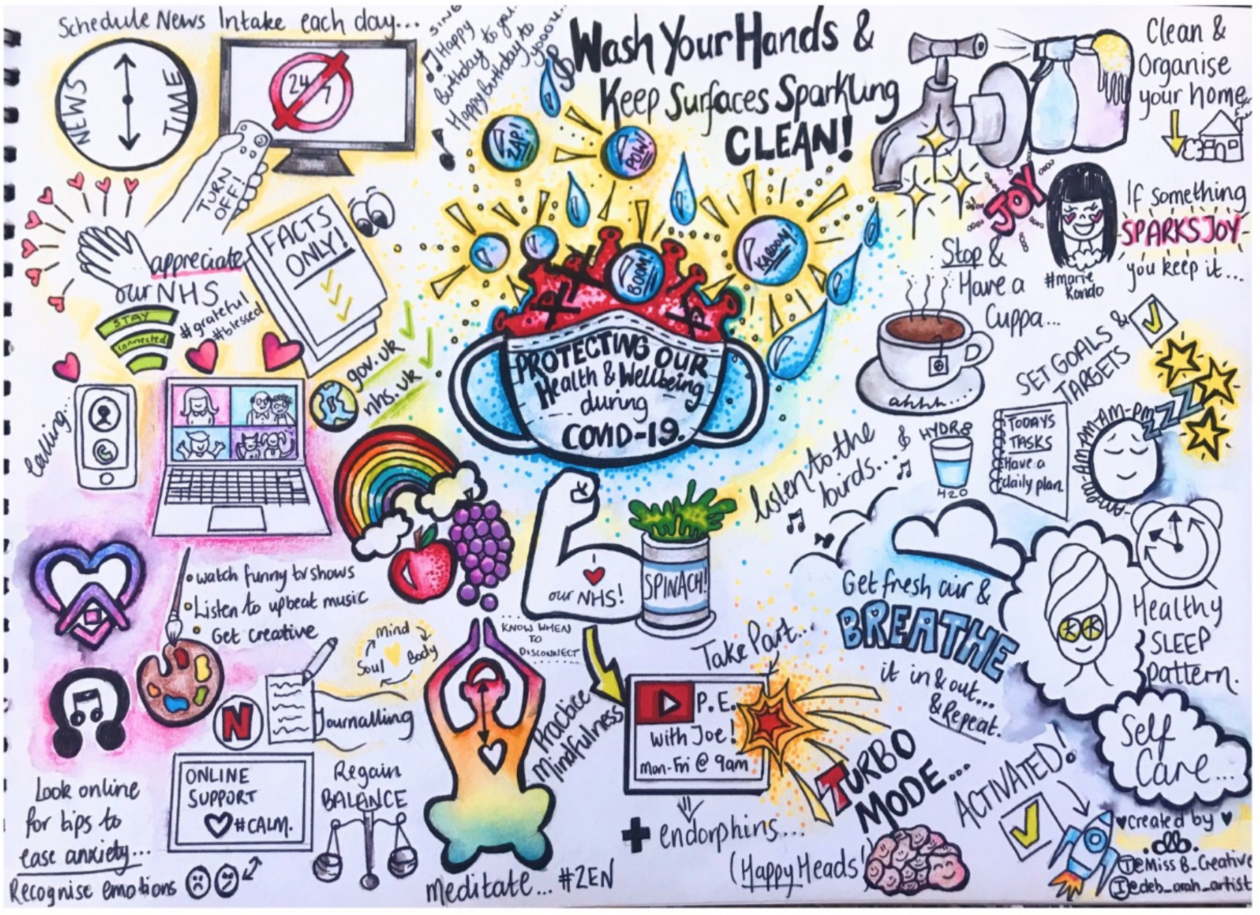 Schedule News Intake each day...
NEWS
TIME
24
7
TURN
OFF!
SING
Happy
Birthday to you..
Happy birthday to
yooou...
Wash Your Hands &
Keep Surfaces Sparkling
CLEAN!
ZAP!
POW!
BOOM!
KABOOM!
Clean &
Organise
your home
JOY
If something
SPARKS JOY
you keep it...
#marie
Kondo
appreciate
our NHS
#grateful
#blessed
FACTS
ONLY!
STAY
connected
gov.uk
nhs.uk
calling...
PROTECTING OUR
Health & Wellbeing
during
COVID-19.
Stop &
Have a
Cuppa...
ahhh...
SET GOALS &
TARGETS
TODAYS
TASKS
Have a
daily plan
HYDR8
H2O
listen to the
birds....
pm-AM-PM-AM-PM-AM-pm
ZZZ
Healthy
SLEEP
pattern.
I
our NHS!
SPINACH!
watch funny tv shows
Listen to upbeat music
Get creative
Mind
Body
Soul
N
Journalling
KNOW WHEN
TO
DISCONNECT
Practice
Mindfulness
Take Part...
P.E.
with Joe!
Mon-Fri @ 9am
+ endorphins...
(Happy Heads)
Get fresh air &
BREATHE
it in & out...
& Repeat.
TURBO
MODE...
ACTIVATED!
Self
Care...
Look online
for tips to
ease anxiety...
Recognise emotions
ONLINE
SUPPORT
#CALM.
Regain
BALANCE
Meditate... #ZEN
created by
dlb
@Miss_B_Creative
@deb_orah_artist